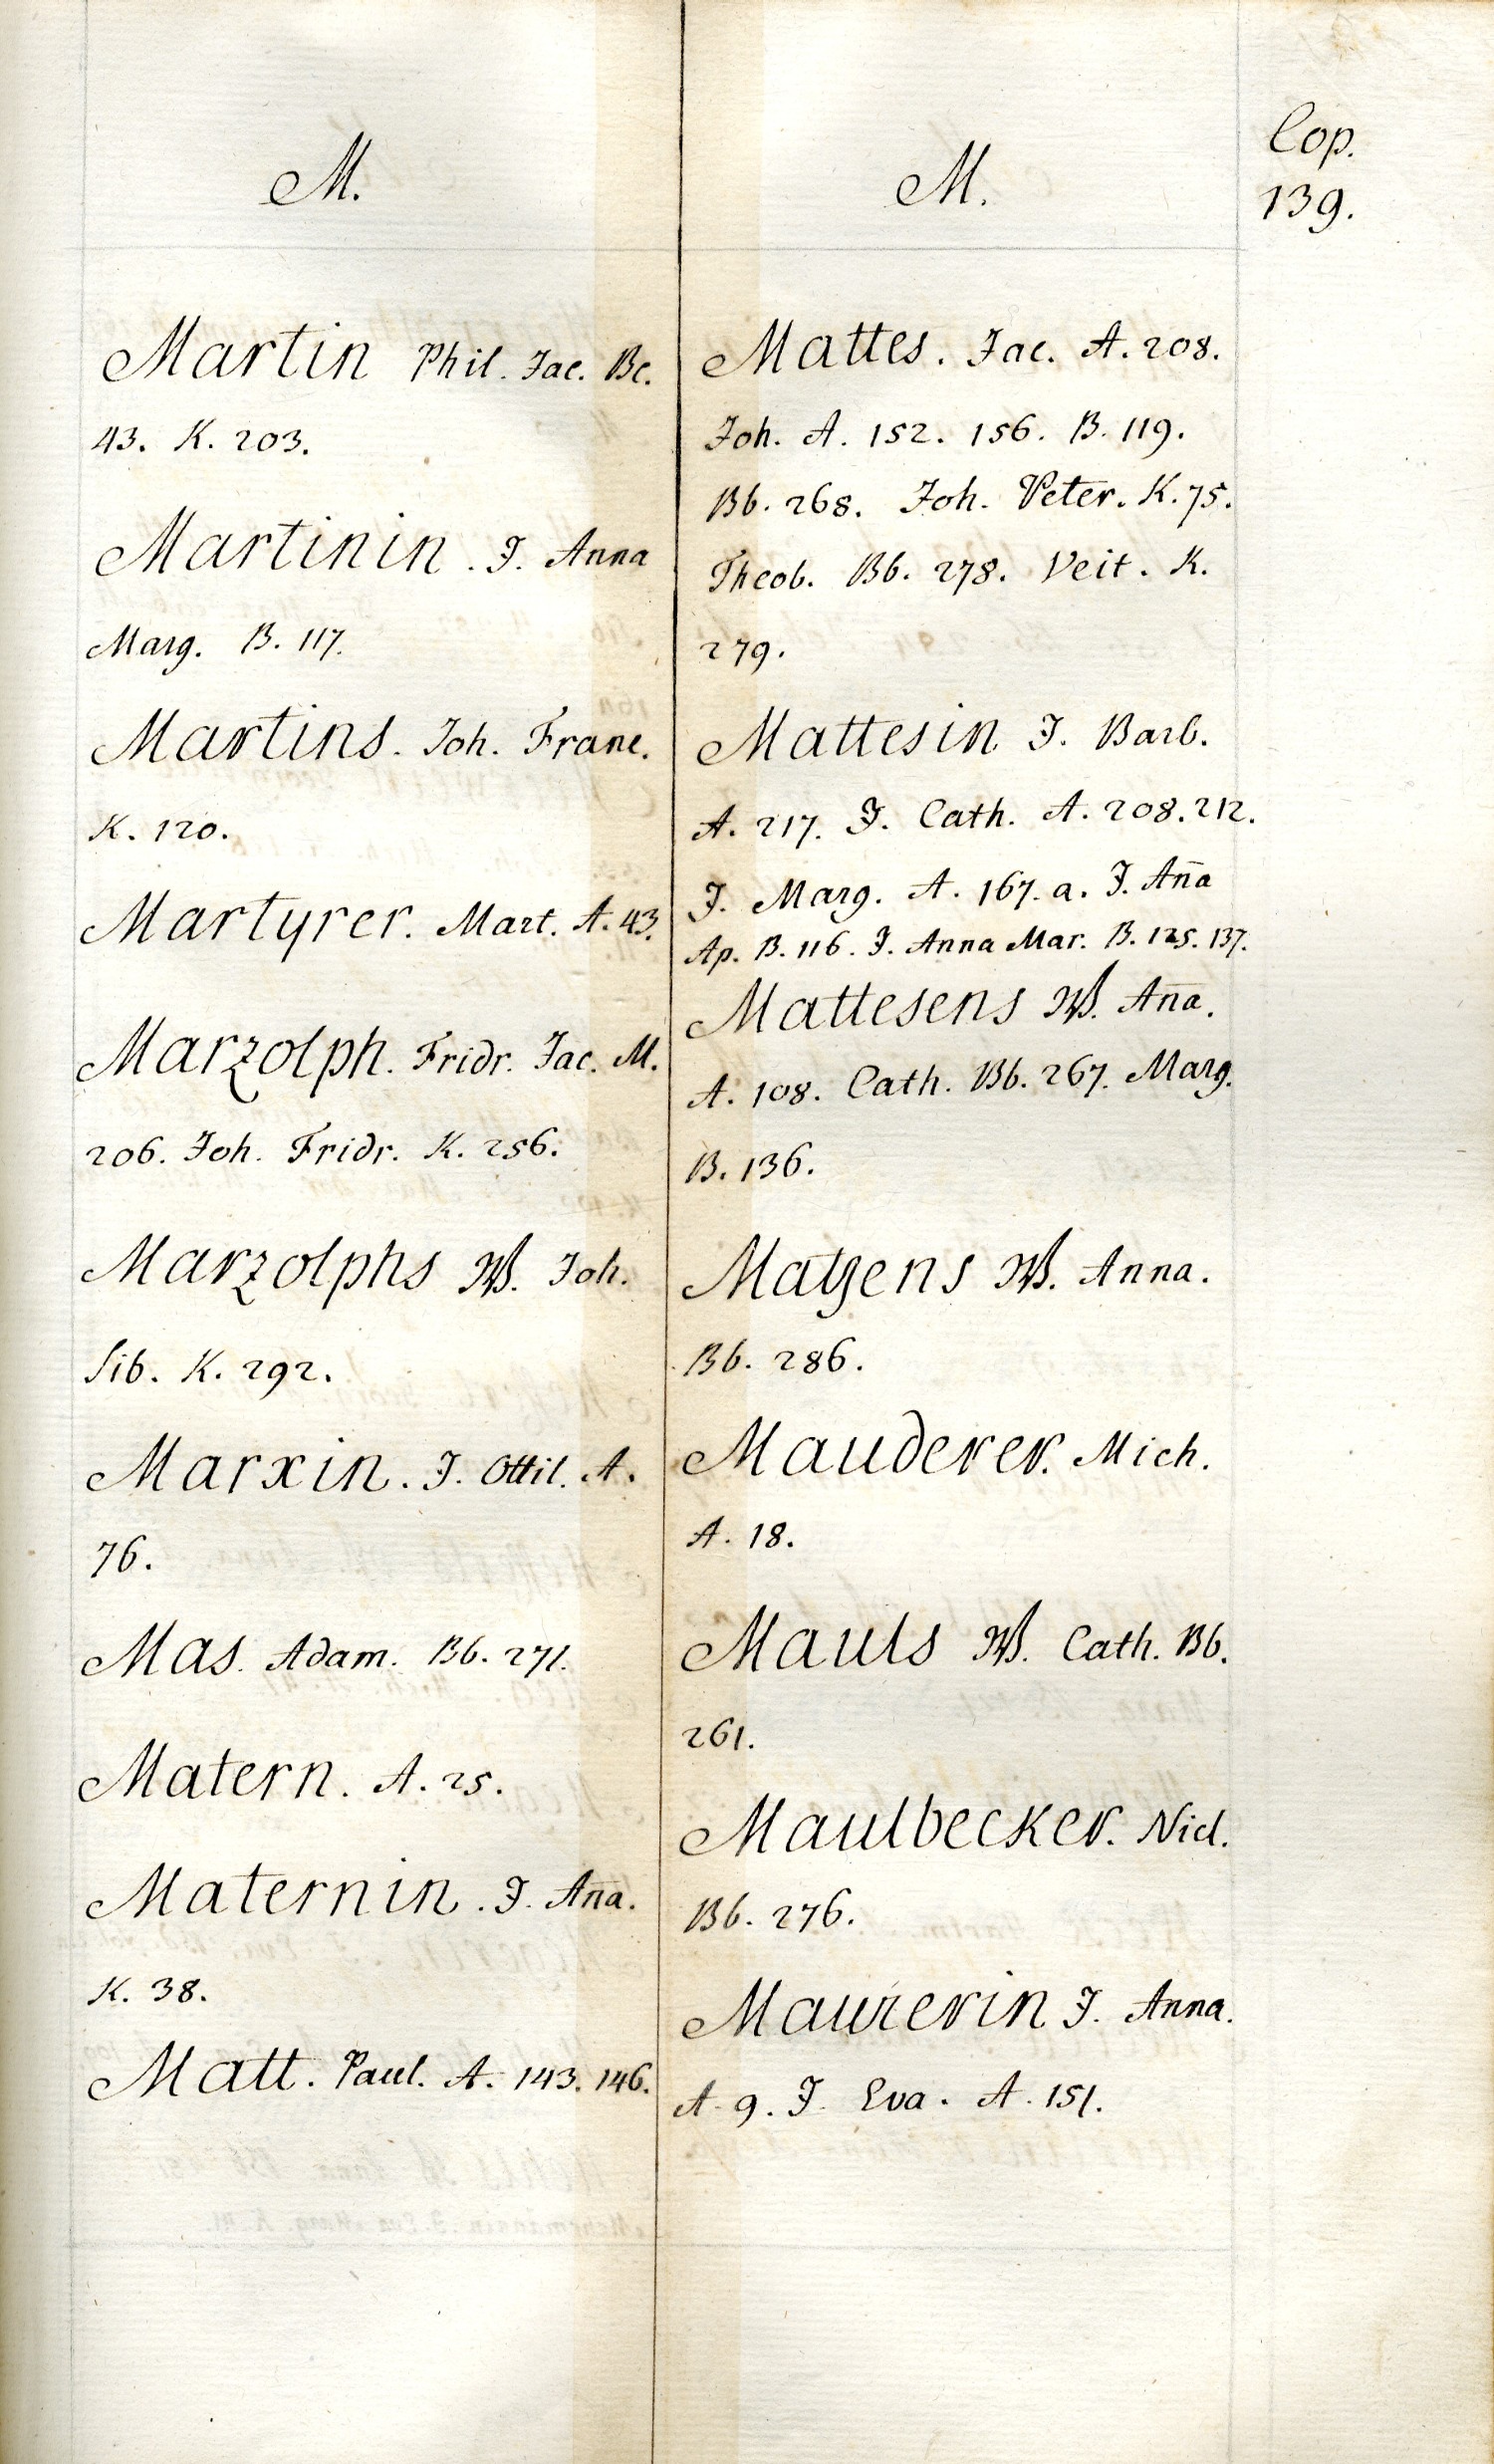 M.
Martin Phil. Jac. Bc.
43. K. 203.
Martinin. J. Anna
Marg. B. 117.
Martins. Joh. Franc.
K. 120.
Martyrer. Mart. A. 43.
Marzolph. Fridr. Jac. M.
206. Joh. Fridr. K. 256.
Marzolphs W. Joh.
Sib. K. 292.
Marxin. J. Ottil. A.
76.
Mas. Adam. Bb. 271.
Matern. A. 25.
Maternin. J. Aña.
K. 38.
Matt. Paul. A. 143. 146.
M.
Mattes. Jac. A. 208.
Joh. A. 152. 156. B. 119.
Bb. 268. Joh. Peter. K. 75.
Theob. Bb. 278. Veit. K.
279.
Mattesin J. Barb.
A. 217. J. Cath. A. 208. 212.
J. Marg. A. 167. a. J. Aña
Ap. B. 116. J. Anna Mar. B. 125. 137.
Mattesens W. Aña.
A. 108. Cath. Bb. 267. Marg.
B. 136.
Matzens W. Anna.
Bb. 286.
Mauderer. Mich.
A. 18.
Mauls W. Cath. Bb.
261.
Maulbecker. Nicl.
Bb. 276.
Maurerin J. Anna.
A. 9. J. Eva. A. 151.
Cop.
139.